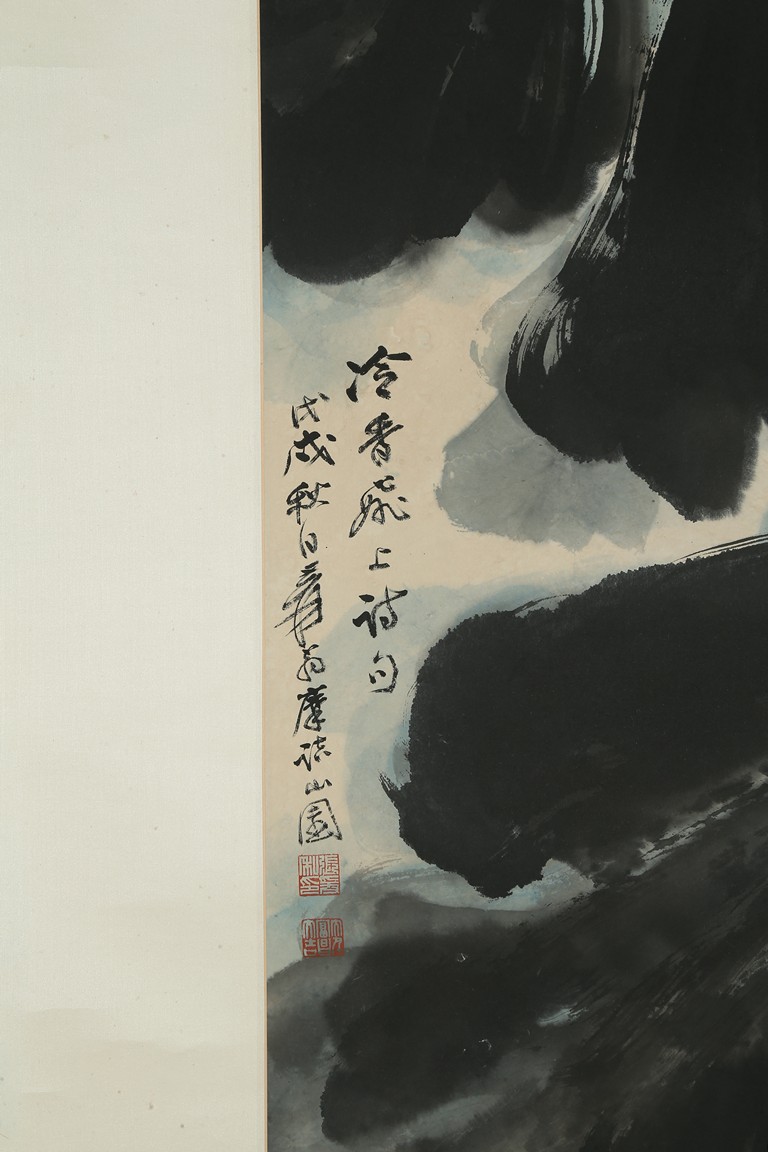 冷香飛上詩句
戊戌秋日爰翁摩詰山園